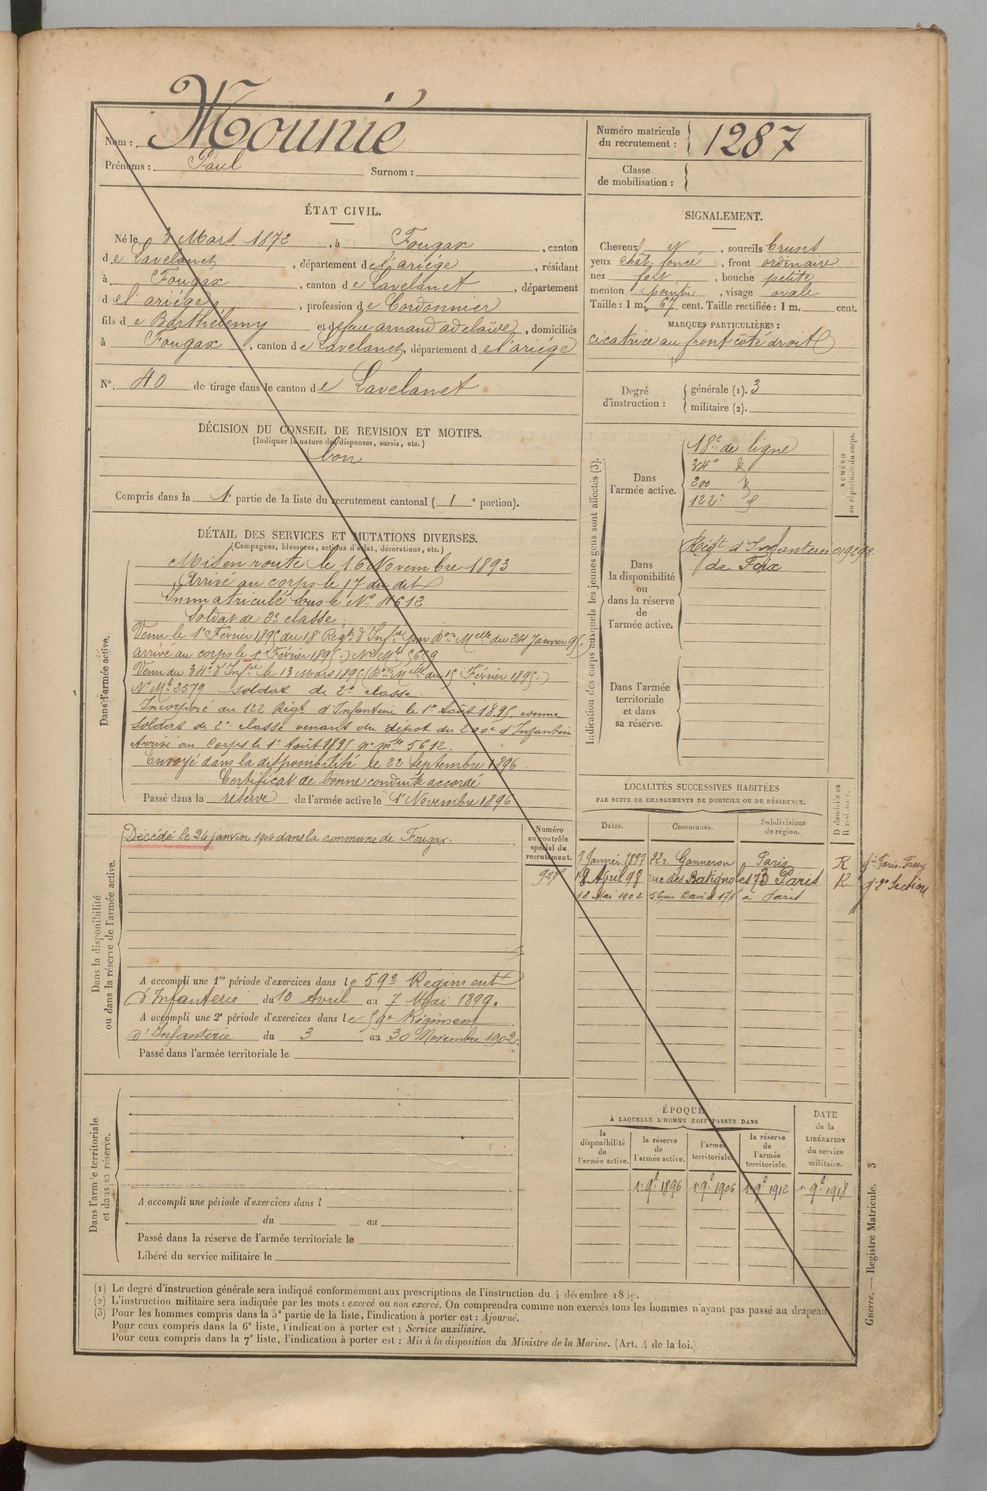 Nom : Mounié
Prénoms : Paul Surnom :
Numéro matricule du recrutement : 1287
Classe de mobilisation :
ÉTAT CIVIL.
Né le Mars 1872, à Fougax, canton
de Lavelanet, département de l'ariége, résidant
à Fougax, canton de Lavelanet, département
de l'ariége, profession de Cordonnier
fils de Barthélemy et de feue arnaud adelaïde, domiciliés
à Fougax, canton de Lavelanet, département de l'ariége
N°. 40 de tirage dans le canton de Lavelanet
SIGNALEMENT.
Cheveux N, sourcils bruns
yeux chat. foncé, front ordinaire
nez fort, bouche petite
menton pointu, visage ovale
Taille : 1 m. 67 cent. Taille rectifiée : 1 m. cent.
MARQUES PARTICULIÈRES :
cicatrice au front coté droit
Degré d'instruction : générale (1). 3
militaire (2).
DÉCISION DU CONSEIL DE REVISION ET MOTIFS.
(Indiquer la nature des dispenses, sursis, etc.)
bon
Compris dans la 1e partie de la liste du recrutement cantonal ( 1e portion).
DÉTAIL DES SERVICES ET MUTATIONS DIVERSES.
(Campagnes, blessures, actions d'éclat, décorations, etc.)
Dans l'armée active.
Mis en route le 16 Novembre 1893
Arrivé au corps le 17 du dit
Immatriculé sous le N° 4612
Soldat de 2e classe
Venu le 1er Février 1895 du 18e Régt d'Infie par Don Mlle du 24 Janvier 95
arrivé au corps le 1er Février 1895. N° Mle
Venu du 34e d'Infie le 13 Mars 1895 (Don Mlle du 15 Février 1895)
N° Mle 2579 Soldat de 2e classe.
Incorporé au 122 Régt d'Infanterie le 1er Août 1895 comme
soldat de 2e classe venant du dépôt du 200e d'Infanterie
Arrivé au Corps le 1er Août 1895 n° mle 5612.
Envoyé dans la disponibilité le 22 Septembre 1896
Certificat de bonne conduite accordé
Passé dans la réserve de l'armée active le 1er Novembre 1896
Indication des corps auxquels les jeunes gens sont affectés (3).
NUMÉRO au répertoire du corps.
Dans l'armée active.
18e de ligne
34e d°
200 d°
122e d°
Dans la disponibilité ou dans la réserve de l'armée active.
Régt d'Infanterie
de Foix
Dans l'armée territoriale et dans sa réserve.
Dans la disponibilité ou dans la réserve de l'armée active.
Numéro au contrôle spécial du recrutement.
Décédé le 24 janvier 1904 dans la commune de Fougax.
A accompli une 1re période d'exercices dans le 59e Régiment
d'Infanterie du 10 Avril au 7 Mai 1899.
A accompli une 2e période d'exercices dans le 59e Régiment
d'Infanterie du 3 au 30 Novembre 1902.
Passé dans l'armée territoriale le
LOCALITÉS SUCCESSIVES HABITÉES
PAR SUITE DE CHANGEMENTS DE DOMICILE OU DE RÉSIDENCE.
Dates. Communes. Subdivisions de région. D domicile ou R résidence.
7 Janvier 1897 22 r Ganneron Paris R
18 Avril 98 rue des Batignolles 73 Paris R 2e Section
18 Mai 1902 à Paris
Dans l'armée territoriale et dans sa réserve.
A accompli une période d'exercices dans l
du au
Passé dans la réserve de l'armée territoriale le
Libéré du service militaire le
ÉPOQUE
À LAQUELLE L'HOMME DOIT PASSER DANS
la disponibilité de l'armée active.
la réserve de l'armée active.
l'armée territoriale.
la réserve de l'armée territoriale.
DATE de la LIBÉRATION du service militaire.
1er 9bre 1896 1er 9bre 1906 1er 9bre 1912 1er 9bre 1918
(1) Le degré d'instruction générale sera indiqué conformément aux prescriptions de l'instruction du 4 décembre
(2) L'instruction militaire sera indiquée par les mots : exercé ou non exercé. On comprendra comme non exercés tous les hommes n'ayant pas passé au drapeau.
(3) Pour les hommes compris dans la 5e partie de la liste, l'indication à porter est : Ajourné.
Pour ceux compris dans la 6e liste, l'indication à porter est : Service auxiliaire.
Pour ceux compris dans la 7e liste, l'indication à porter est : Mis à la disposition du Ministre de la Marine. (Art. 4 de la loi.)
Guerre. — Registre Matricule. 3